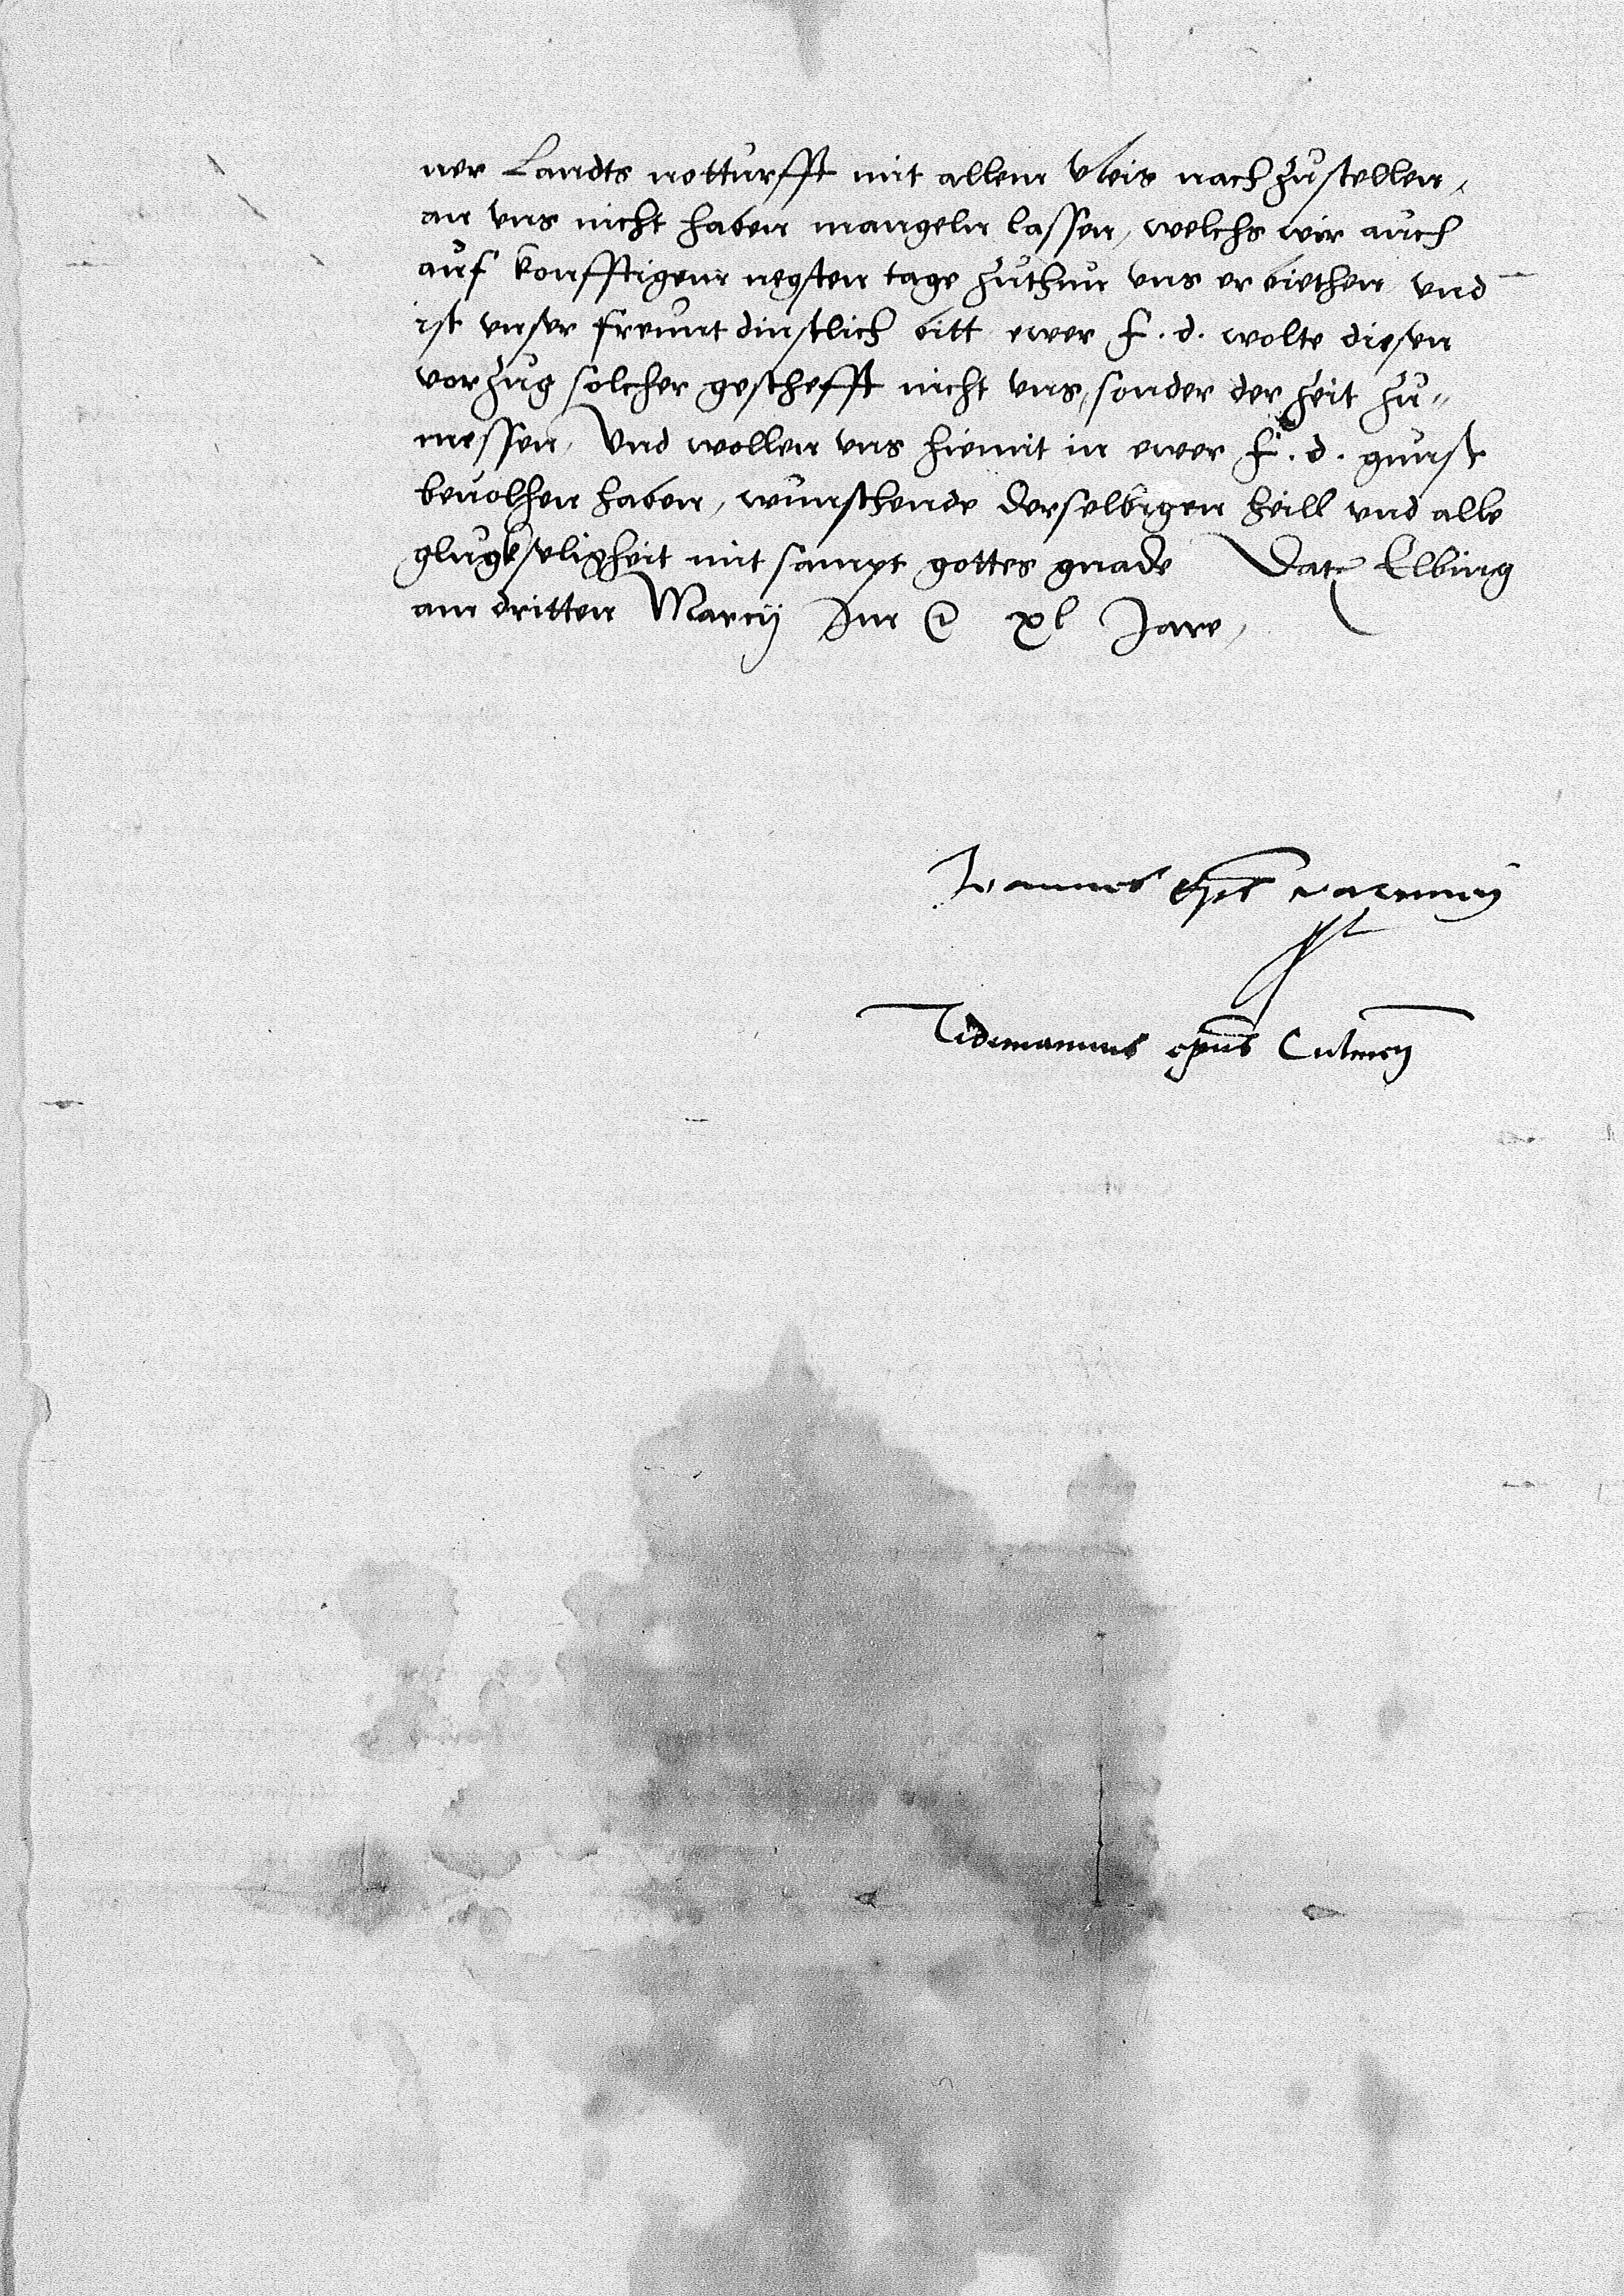 ner Landts notturfft mit allem vleis nach zustellen,
an vns nicht haben mangeln lassen, welchs wir auch
auf konfftigem negsten tage zuthun vns erbiethen vnd
ist vnser freunt dinstlich bitt ewer f. d. wolte diesen
vorzug solcher geschefft nicht vns, sonder der zeit zu=
messen, Vnd wollen vns hiemit in ewer f. d. gunst
beuolhen haben, wunschende derselbigen heill vnd alle
glugkseligheit mit sampt gottes gnade Dat Elbing
am dritten Marcij Im xl Jare,
Ioannes eps varmien
sst
Tidemannus epus Culmen